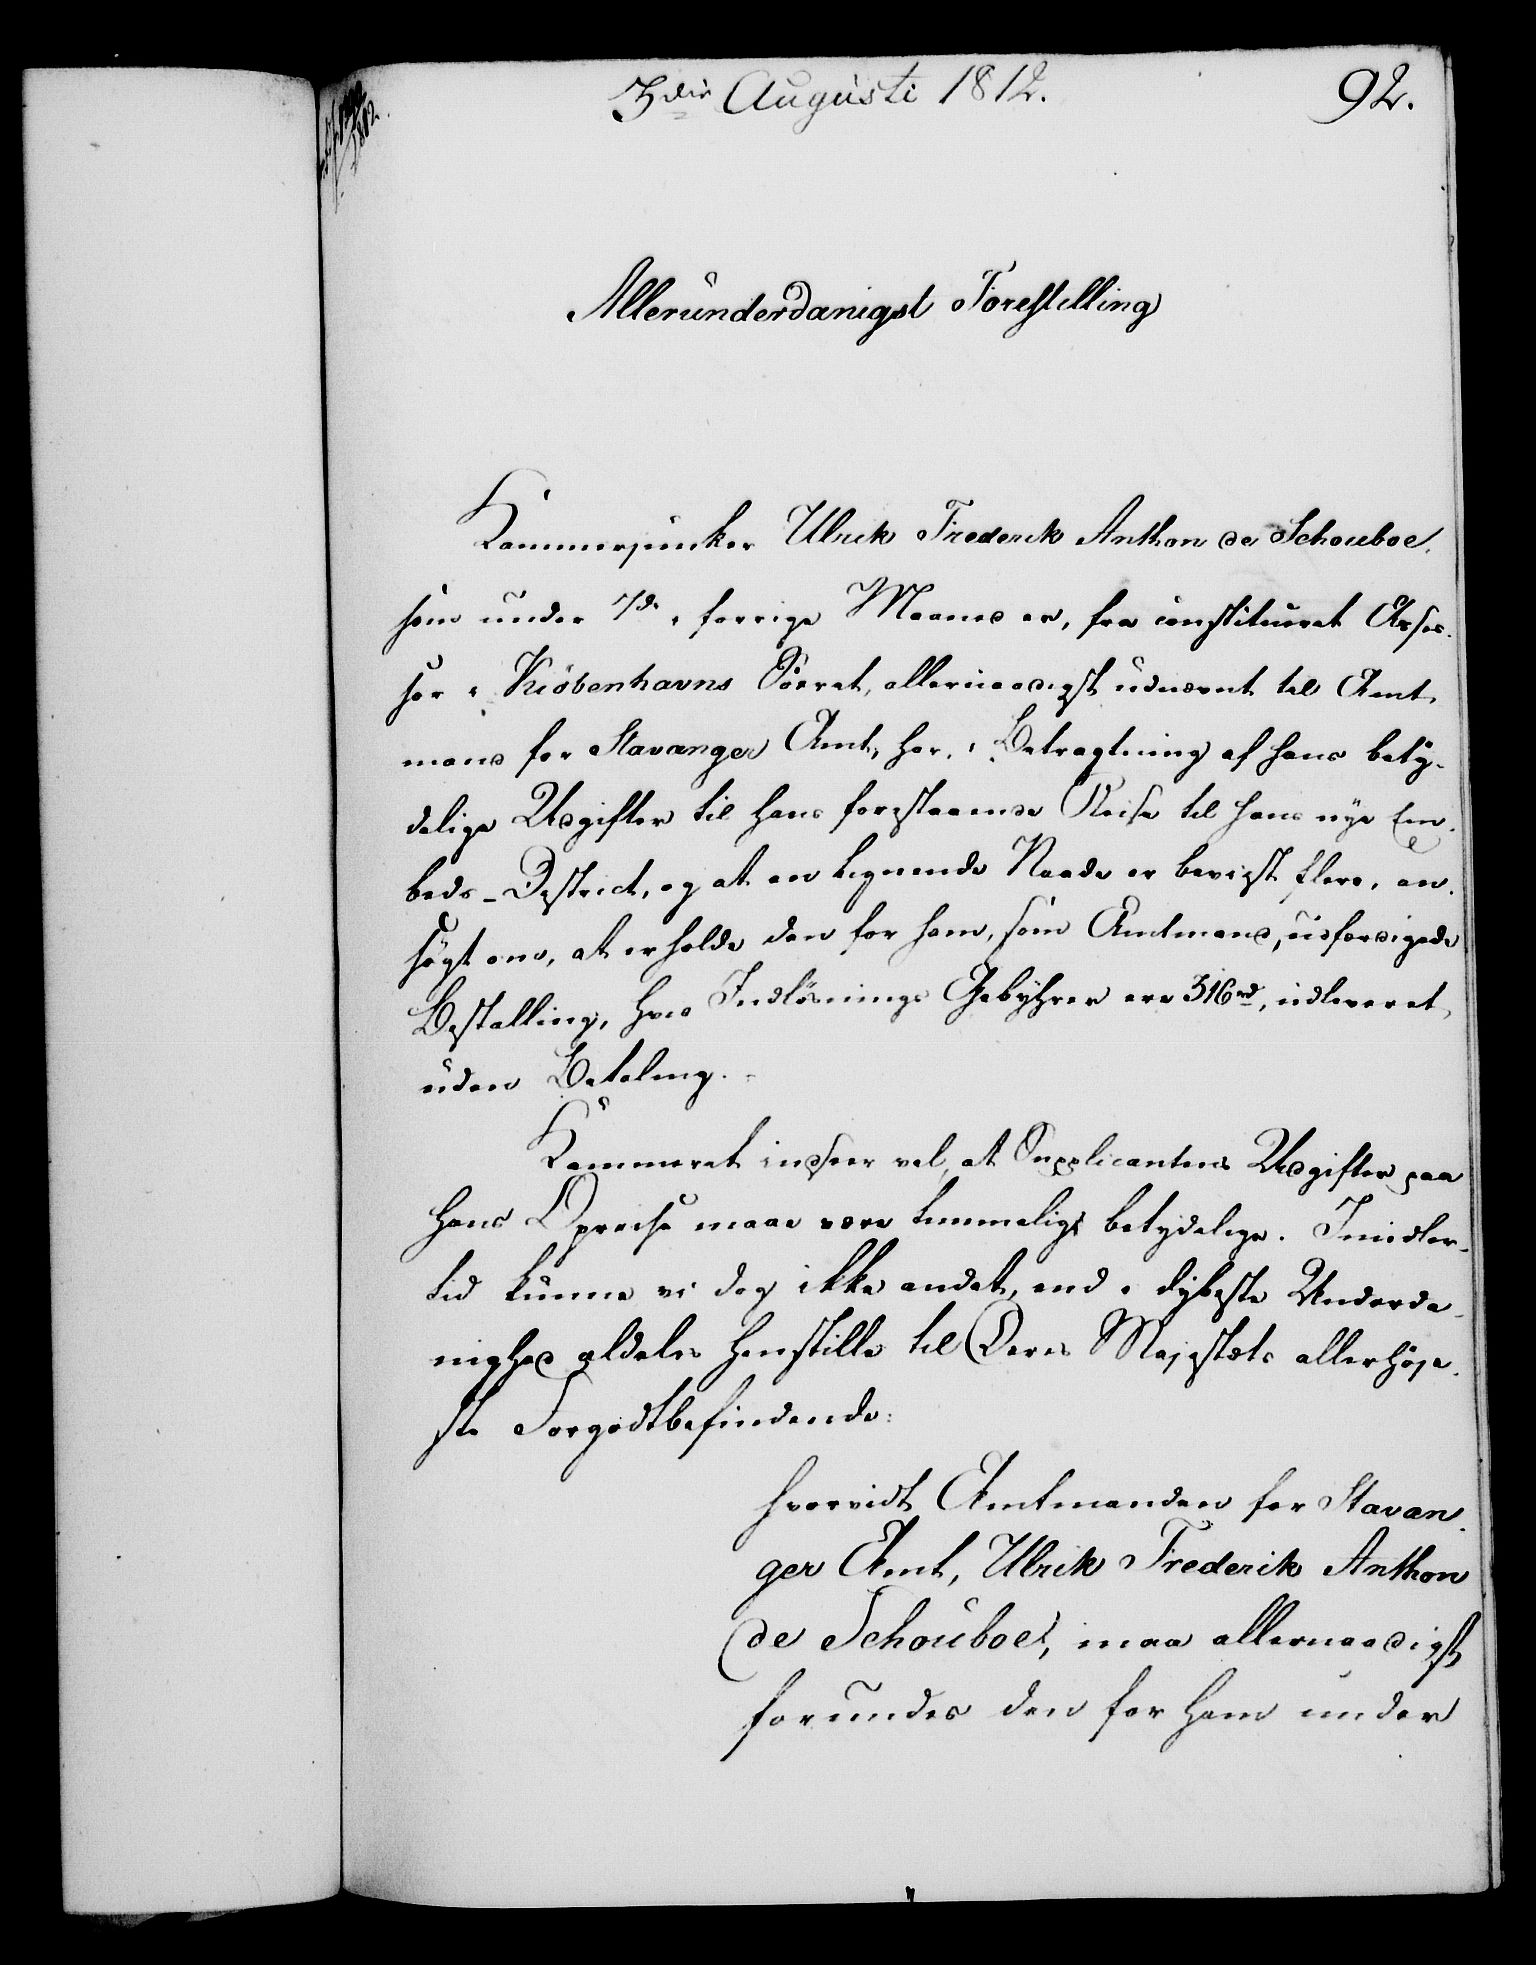 3die Augusti 1812.
92.
Allerunderdanigst Forestilling
Kammerjunker Ulrik Frederik Anthon de Schouboe,
som under 7de i forrige Maaned er, fra constitueret Asses-
sor i Kiöbenhavns Politieret, allernaadigst udnævnt til Amt-
mand for Stavanger Amt, har, i Betragtning af hans bety-
delige Udgifter til hans forestaaende Reise til hans nye Em-
beds-District, og at en lignende Naade er beviist flere, an-
søgt om, at erholde den for ham, som Amtmand, udfærdigede
Bestalling, hvis Indløsnings Gebyhrer ere 316 rd, udleveret,
uden Betaling.
Kammeret indseer vel, at Supplicantens Udgifter paa
hans Opreise maae være temmelig betydelige. Imidler-
tid kunne vi dog ikke andet, end i dybeste Underda-
nighed aldeles henstille til Deres Majestæts allerhøje-
ste Forgodtbefindende:
hvorvidt Amtmanden for Stavan-
ger Amt, Ulrik Frederik Anthon
de Schouboe, maa allernaadigst
forundes den for ham under